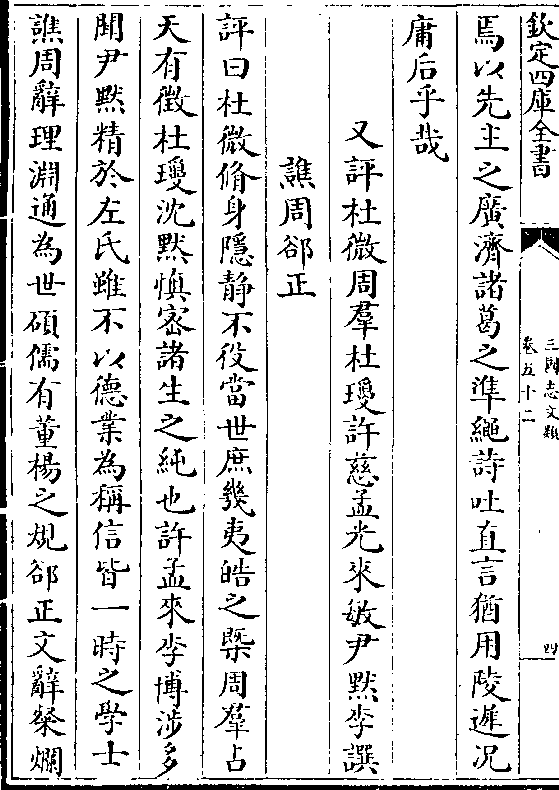 欽定四庫全書
三國志文類
卷五十二
四
焉以先主之廣濟諸葛之準繩詩吐直言猶用陵遲况
庸后乎哉
又評杜微周羣杜瓊許慈孟光來敏尹默李譔
譙周郤正
評曰杜微脩身隱静不役當世庶幾夷皓之槩周羣占
天有徴杜瓊沈默慎宻諸生之純也許孟來李博涉多
聞尹默精於左氏雖不以德業為稱信皆一時之學士
譙周辭理淵通為世碩儒有董楊之規郤正文辭粲爛